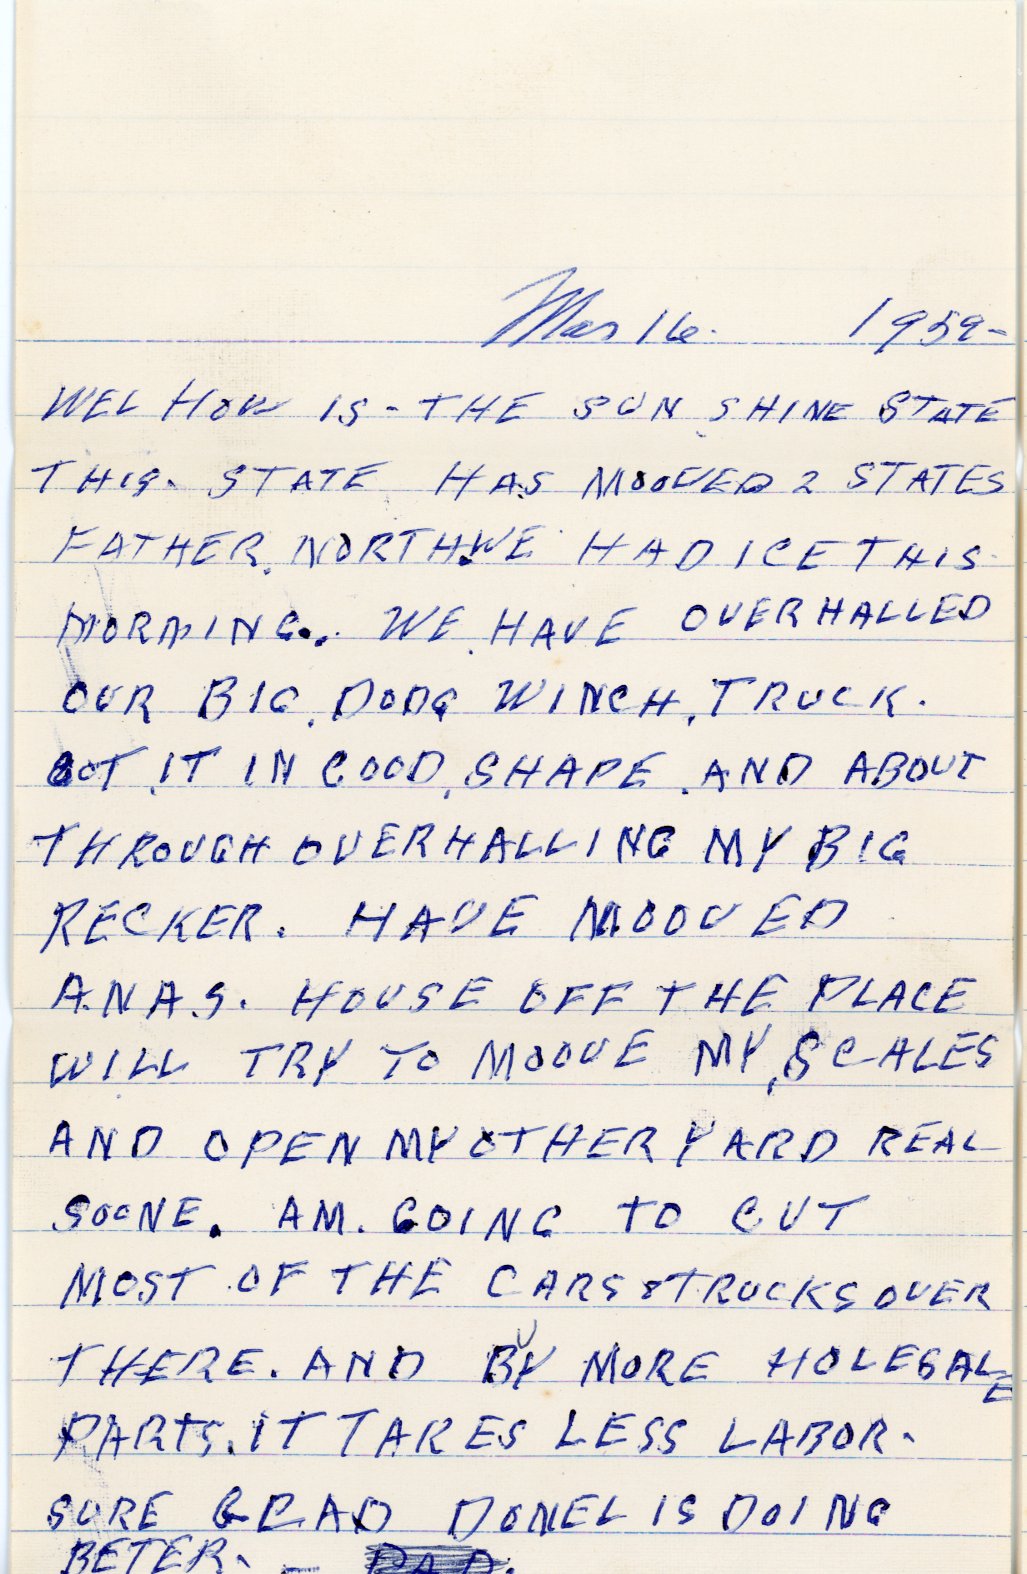 Mar 16. 1959-
WEL HOW IS - THE SUN SHINE STATE
THIS. STATE HAS MOOVED 2 STATES
FATHER. NORTH. WE HAD ICE THIS
MORNING.. WE HAVE OVERHALLED
OUR BIG. DODG WINCH. TRUCK.
GOT IT IN GOOD SHAPE AND ABOUT
THROUGH OVERHALLING MY BIG
RECKER. HAVE MOOVED
A.N.A.S. HOUSE OFF THE PLACE
WILL TRY TO MOOVE MY SCALES
AND OPEN MY OTHER YARD REAL
SOONE. AM. GOING TO CUT
MOST OF THE CARS & TRUCKS OVER
THERE. AND BUY MORE HOLESALE
PARTS. IT TAKES LESS LABOR.
SURE GLAD DONEL IS DOING
BETER. - DAD.